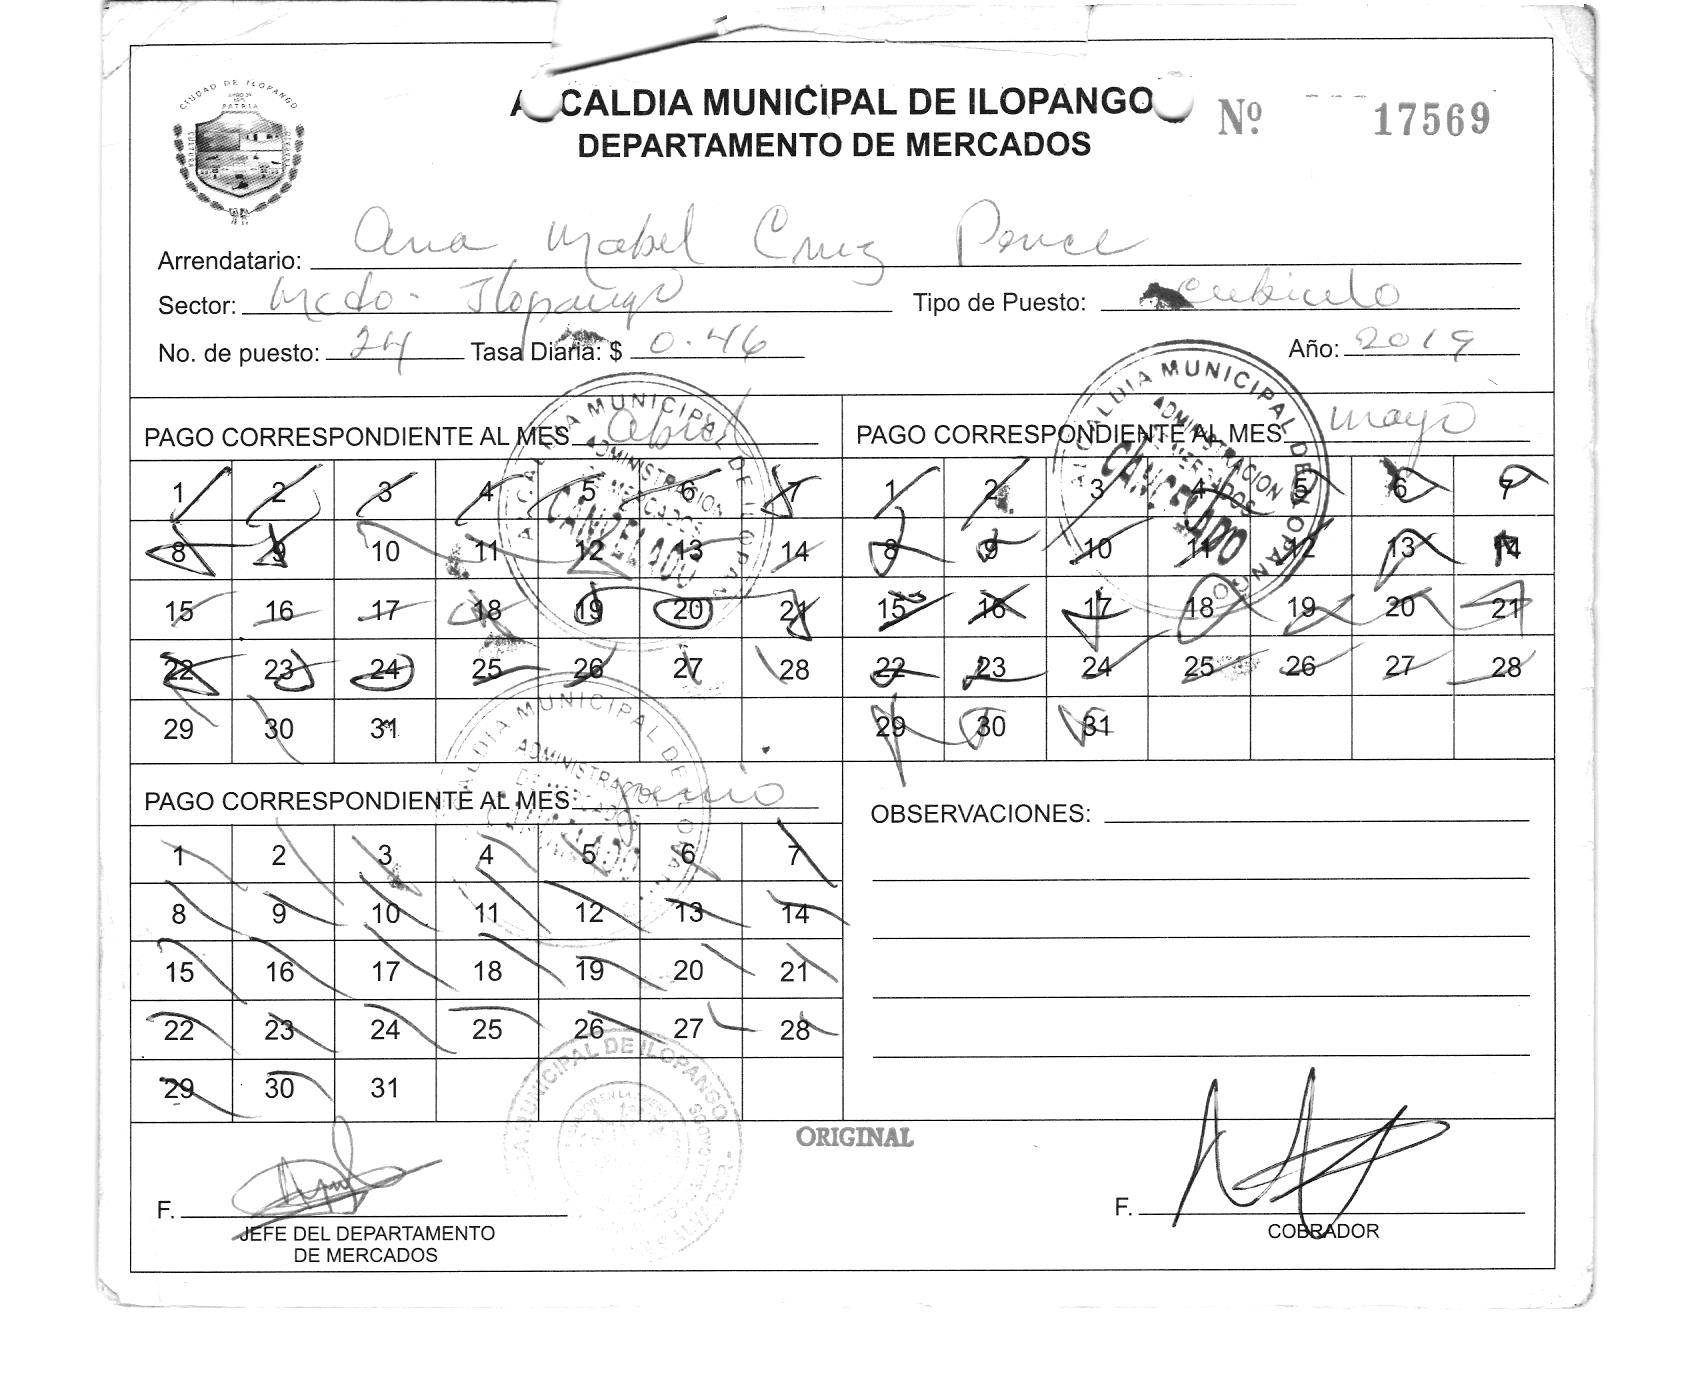 CIUDAD DE ILOPANGO
PATRIA
CULTURA
ALCALDIA MUNICIPAL DE ILOPANGO
Nº 17569
DEPARTAMENTO DE MERCADOS
Arrendatario: Ana Mabel Cruz Ponce
Sector: Mcdo. Ilopango Tipo de Puesto: cubiculo
No. de puesto: 24 Tasa Diaria: $ 0.46 Año: 2019
PAGO CORRESPONDIENTE AL MES abril
1 2 3 4 5 6 7
8 9 10 11 12 13 14
15 16 17 18 19 20 21
22 23 24 25 26 27 28
29 30 31
ALCALDIA MUNICIPAL DE ILOPANGO
ADMINISTRACION
DE MERCADOS
CANCELADO
PAGO CORRESPONDIENTE AL MES mayo
1 2 3 4 5 6 7
8 9 10 11 12 13 14
15 16 17 18 19 20 21
22 23 24 25 26 27 28
29 30 31
ALCALDIA MUNICIPAL DE ILOPANGO
ADMINISTRACION
DE MERCADOS
CANCELADO
PAGO CORRESPONDIENTE AL MES: junio
1 2 3 4 5 6 7
8 9 10 11 12 13 14
15 16 17 18 19 20 21
22 23 24 25 26 27 28
29 30 31
ALCALDIA MUNICIPAL DE ILOPANGO
ADMINISTRACION
DE MERCADOS
OBSERVACIONES:
MUNICIPAL DE ILOPANGO
ORIGINAL
F.
JEFE DEL DEPARTAMENTO
DE MERCADOS
F.
COBRADOR